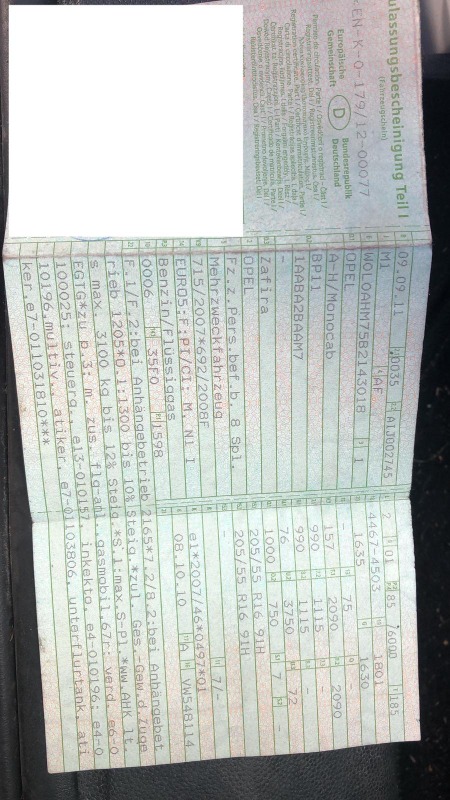 Zulassungsbescheinigung Teil I
(Fahrzeugschein)
EN-K-0-179/12-00077
Europäische
Gemeinschaft
D
Bundesrepublik
Deutschland
09.09.11
0035
A1J002745
M1
AF
W0L0AHM75B2143018
1
OPEL
A-H/Monocab
BP11
1AABA2BAAM7
-
Zafira
OPEL
Fz.z.Pers.bef.b. 8 Spl.
Mehrzweckfahrzeug
715/2007*692/2008F
EURO5;F;PI/CI; M, N1 I
Benzin/Flüssiggas
0006
35F0
1598
2
01
85
6000
185
4467-4503
1801
1635
1630
-
75
-
157
2090
2090
990
1115
-
990
1115
-
76
3750
72
1000
750
7
205/55 R16 91H
205/55 R16 91H
-
7/-
e1*2007/46*0497*01
08.10.10
A
VW548114
F.1/F.2:bei Anhängebetrieb 2165*7.2/8.2:bei Anhängebet
rieb 1205*0.1:1300 bis 10% Steig.*zul. Ges.-Gew.d.Zuge
s max. 3100 kg bis 12% Steig.*S.1:max.S-Pl.*ww.AHK lt.
EGTG*zu p.3: m. zus. flg-anl. gasmobil,67r: verd. e6-0
100025; steuerg. e13-010157; injekto. e4-010196; e4-0
10196,multiv. atiker. e7-01103806, unterflurtank. ati
ker.e7-011031810***